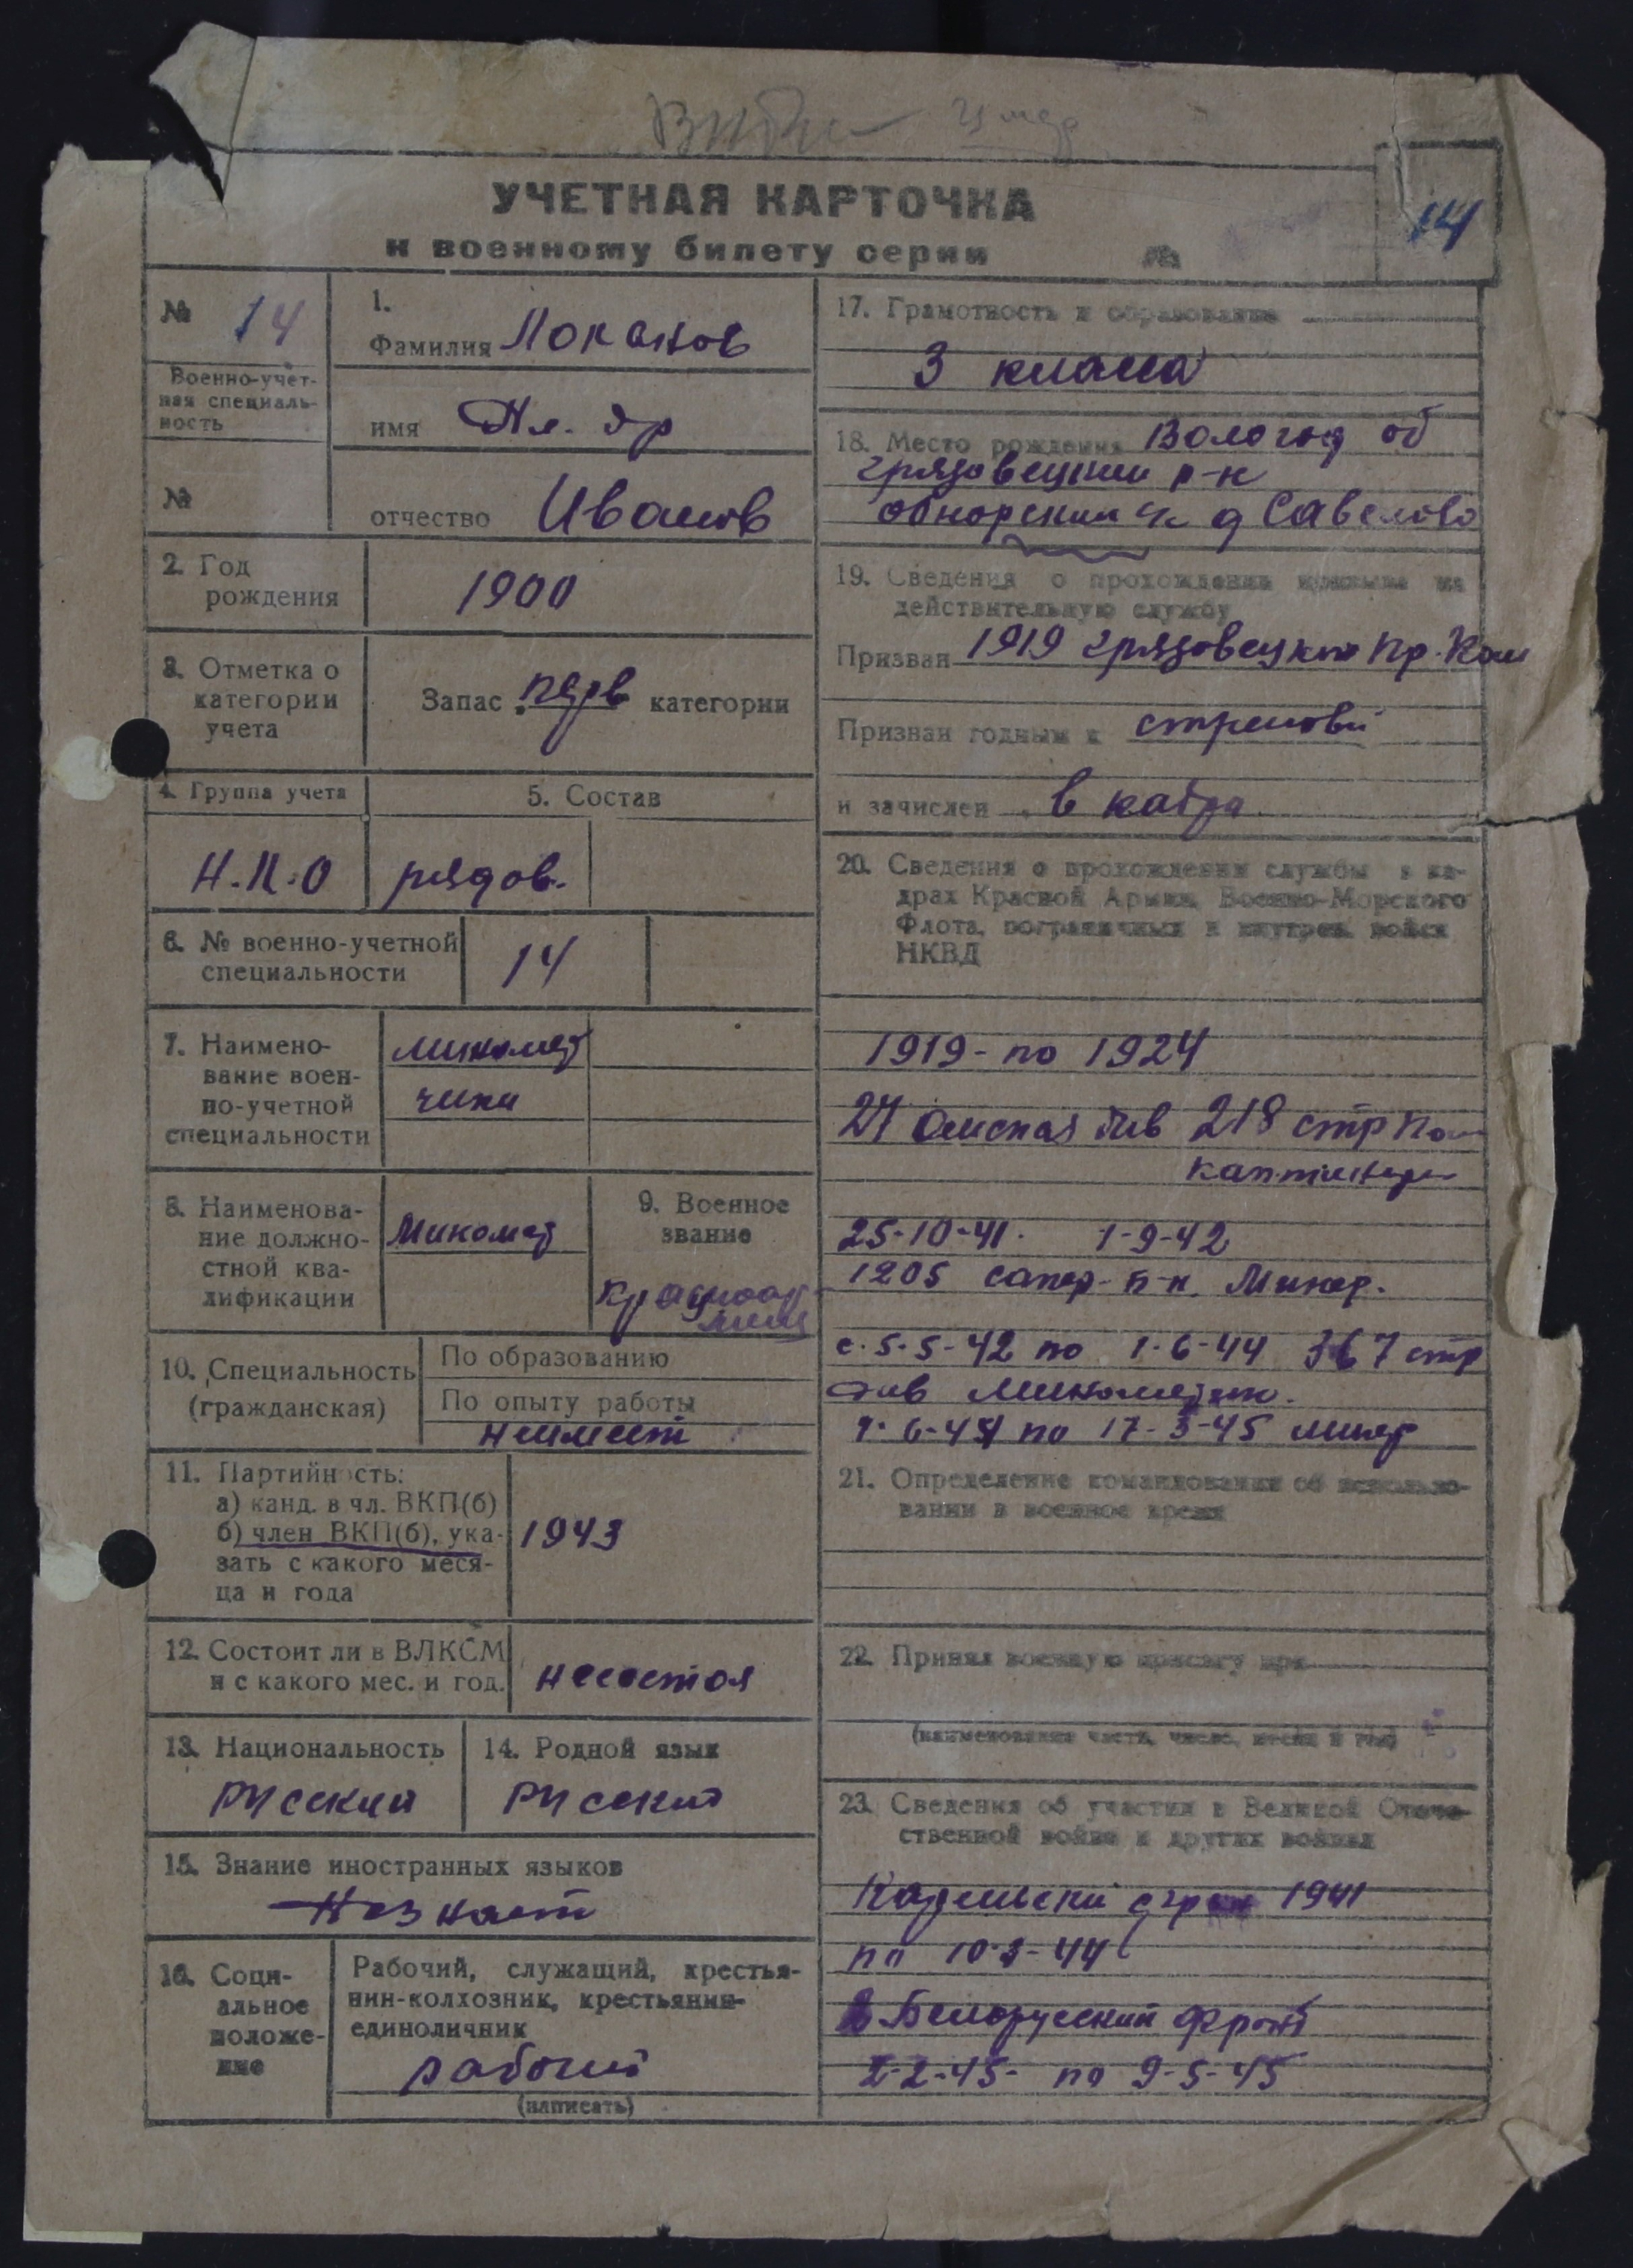 14
УЧЕТНАЯ КАРТОЧКА
к военному билету серии №
№ 14
Военно-учет-
ная специаль-
ность
№
1.
Фамилия Локанов
имя
отчество Иванов
2. Год
рождения
1900
3. Отметка о
категории
учета
Запас перв категории
4. Группа учета
Н.К.О
5. Состав
рядов.
6. № военно-учетной
специальности
14
7. Наимено-
вание воен-
но-учетной
специальности
миномет
чики
8. Наименова-
ние должно-
стной ква-
лификации
Миномет
9. Военное
звание
Красноар
меец
10. Специальность
(гражданская)
По образованию
По опыту работы
неимеет
11. Партийность:
а) канд. в чл. ВКП(б)
б) член ВКП(б), ука-
зать с какого меся-
ца и года
1943
12. Состоит ли в ВЛКСМ
и с какого мес. и год.
несостоя
13. Национальность
русский
14. Родной язык
русский
15. Знание иностранных языков
Незнает
16. Соци-
альное
положе-
ние
Рабочий, служащий, крестья-
нин-колхозник, крестьянин-
единоличник
рабочий
(написать)
17. Грамотность и образование
3 класса
18. Место рождения Вологод об
грязовецкий р-н
обнорский д Савелово
19. Сведения о прохождении призыва на
действительную службу
Призван 1919 грязовецким Пр. Ком
Признан годным к строевой
и зачислен в кадра
20. Сведения о прохождении службы в ка-
драх Красной Армии, Военно-Морского
Флота, пограничных и внутрен. войск
НКВД
1919 - по 1924
27 Омская див 218 стр пол
каптенар
25-10-41. 1-9-42
1205 сапер. б-н. Минер.
с. 5-5-42 по 1-6-44 367 стр
див Минометчик.
1-6-44 по 17-5-45 минер
21. Определение командования об использо-
вании в военное время
22. Принял военную присягу при
(наименование части, число, месяц и год)
23. Сведения об участии в Великой Отече-
ственной войне и других войнах
Карельский фрон 1941
по 10-3-44
Белорусский фронт
2-2-45- по 9-5-45